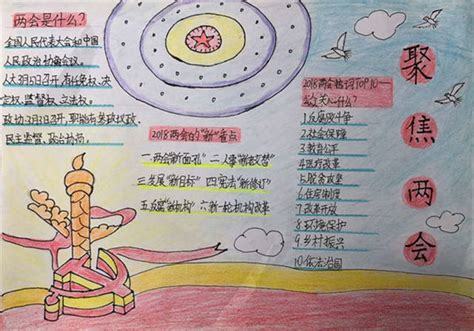 两会是什么?
全国人民代表大会和中国
人民政治协商会议。
人大3月5日召开,有任免权、决
定权,监督权,立法权。
政协3月3日召开,职能有参政议政,
民主监督,政治协商。
2018两会的"新"看点
一.两会"新面孔" 二.人事"新
三.发展"新目标" 四.宪法"新修订"
五.反腐"新机构" 六.新一轮机构改革
2018两会热词TOP10—
关心什么?
1.反腐败斗争
2.社会保障
3.教育公平
4.医疗改革
5.脱贫攻坚
6.住房制度
7.改革开放
8.环境保护
9.乡村振兴
10.依法治国
聚焦两会